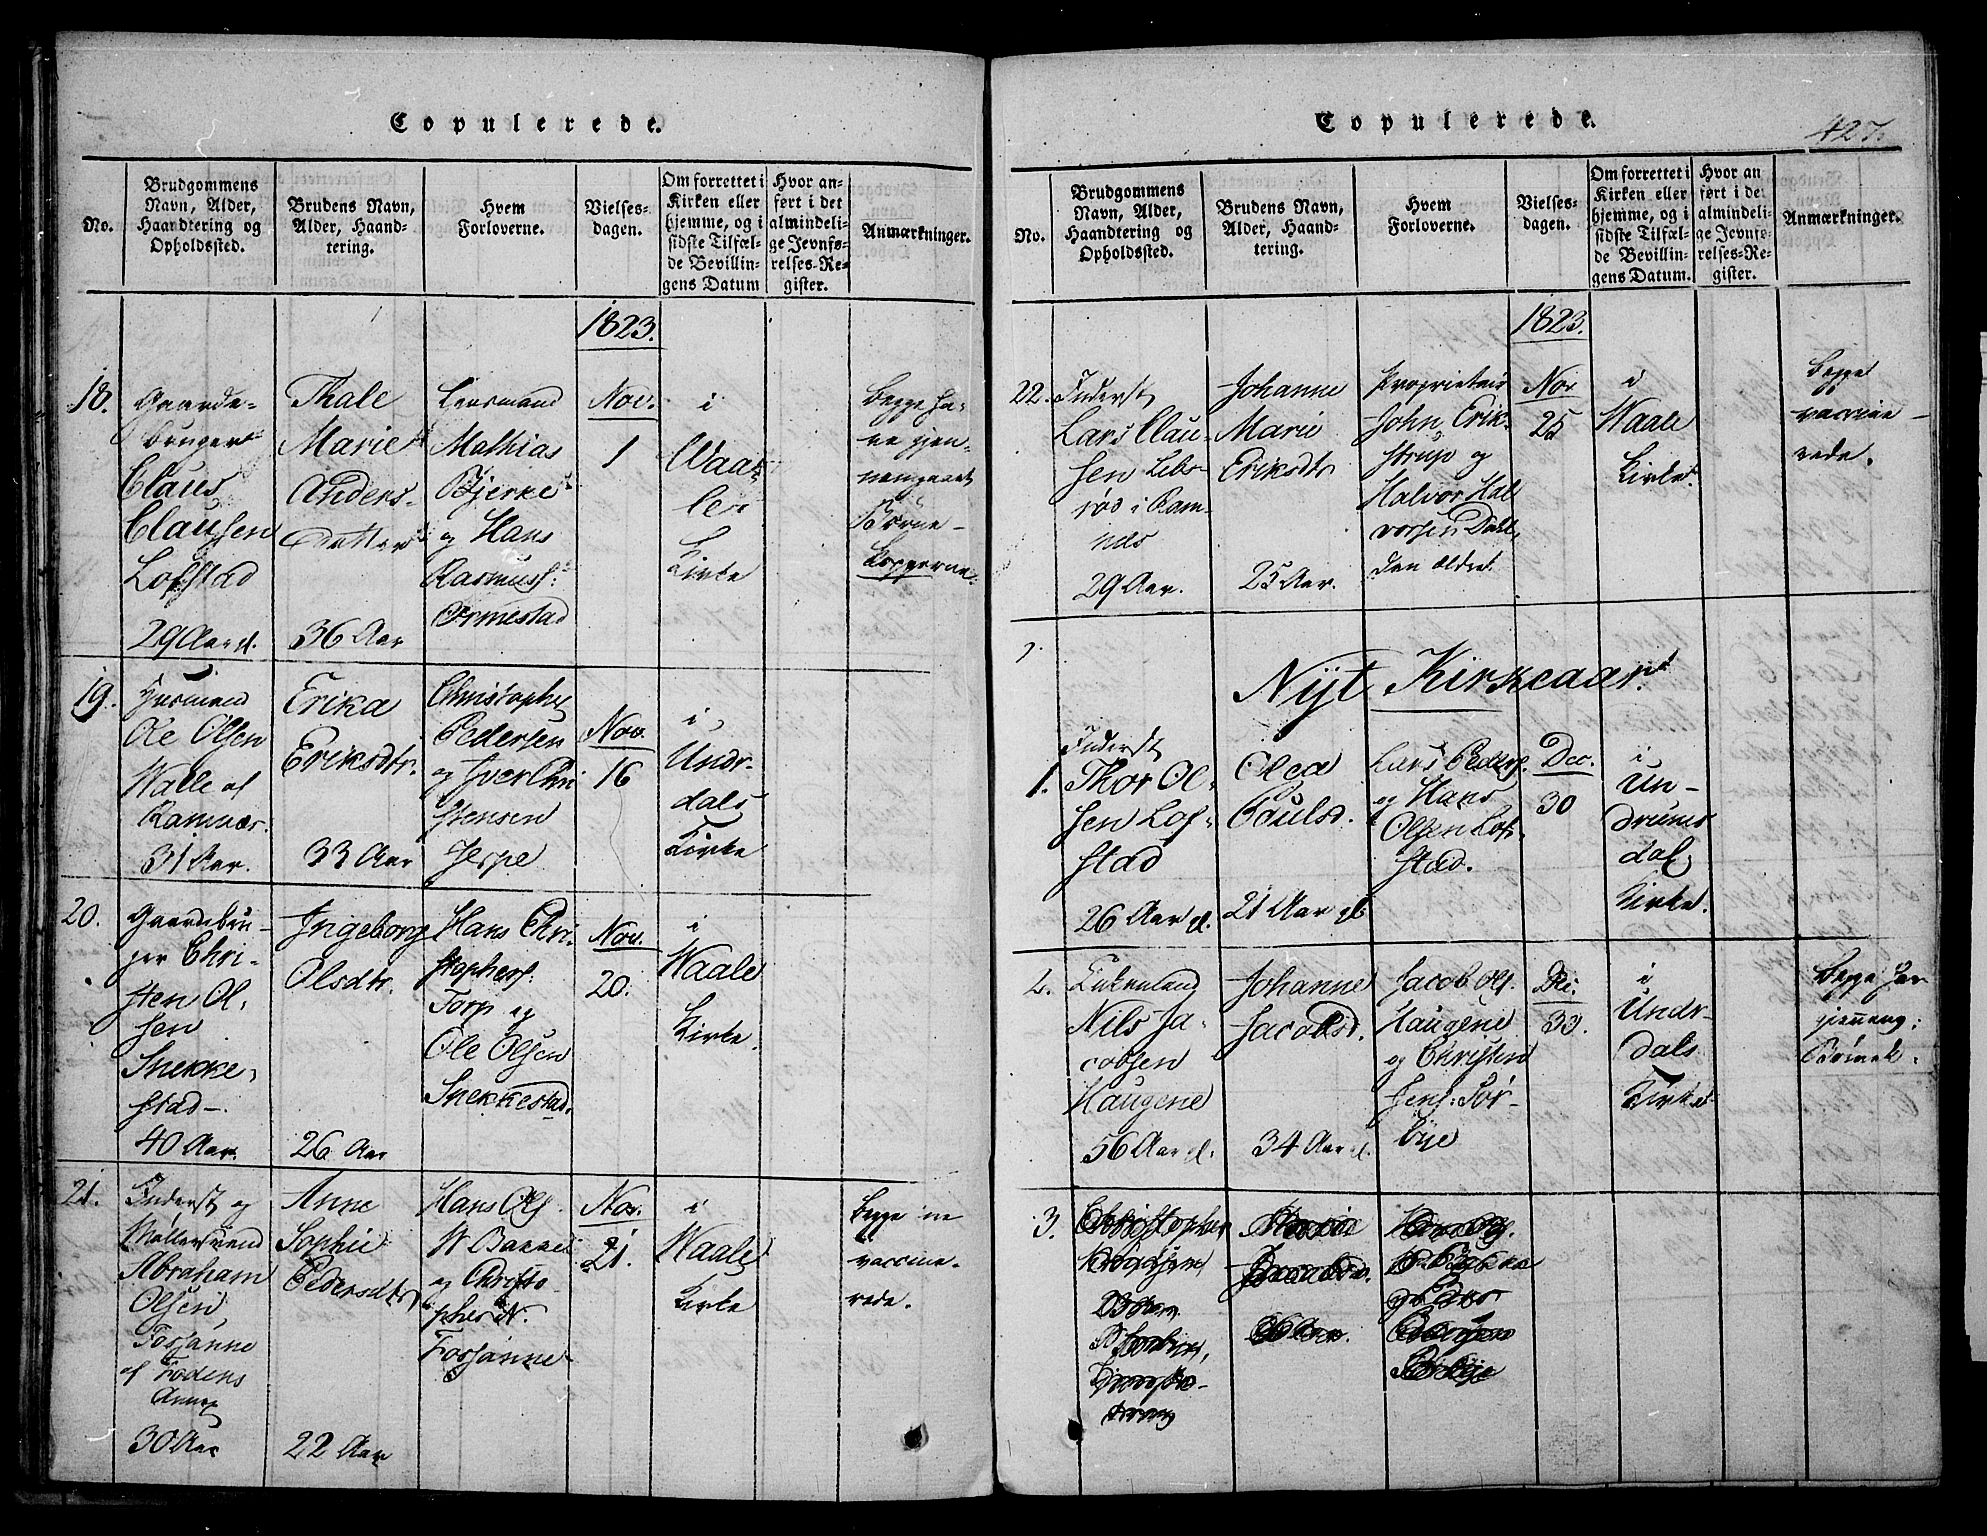 Copulerede.
No.
Brudgommens
Navn, Alder,
Haandtering og
Opholdssted.
Brudens Navn,
Alder, Haand-
tering.
Hvem
Forloverne.
Vielses-
dagen.
Om forrettet i
Kirken eller
hjemme, og i
sidste Tilfæl-
de Bevillin-
gens Datum
Hvor an-
ført i det
almindeli-
ge Jevnfø-
relses-Re-
gister.
Anmærkninger.
1823.
18.
Gaarde-
bruger
Claus
Clausen
Lofstad
29 Aar
Thale
Marie
Anders-
datter
36 Aar
Leensmand
Mathias
Bjerke
og Hans
Rasmuss:
Ormestad
Nov.
1
i
Waa-
ler
Kirke
Begge ha-
ve gjen-
nemgaaet
Børne-
kopperne.
19.
Huusmand
Ole Olsen
Walle af
Ramnæs.
31 Aar.
Erika
Eriksdtr.
33 Aar
Christopher
Pedersen
og Iver Chri
stensen
Jerpe
Nov.
16
i
Undr-
dals
Kirke
20.
Gaardebru-
ger Chri-
sten Ol-
sen
Snekke-
stad-.
40 Aar.
Ingeborg
Olsdtr.
26 Aar
Hans Chri-
stophers.
Torp og
Ole Olsen
Snekkestad.
Nov.
20.
i
Waale
Kirke.
21.
Inderst og
Møllersvend
Abraham
Olsen
Forsanne
af Fodens
Annex
30 Aar
Anne
Sophie
Pedersdtr
22 Aar
Hans Ols.
W Bakke
og Christo
pher N.
Forsanne
Nov.
21.
i
Waale
Kirke
Begge ere
vaccine-
rede.
Copulerede.
427.
No.
Brudgommens
Navn, Alder,
Haandtering og
Opholdssted.
Brudens Navn,
Alder, Haand-
tering.
Hvem
Forloverne.
Vielses-
dagen.
Om forrettet i
Kirken eller
hjemme, og i
sidste Tilfæl-
de Bevillin-
gens Datum.
Hvor an
ført i de
almindeli-
ge Jevnfø-
relses-Re-
gister.
Anmærkninger.
1823.
22.
Inderst
Lars Clau-
sen Leb-
røs i Ram-
næs
29 Aar.
Johanne
Marie
Eriksdtr
25 Aar.
Proprietair
John Erik-
strup og
Halvor Hal
vorsen Dahl
den ældre.
Nov
25
i
Waale
Kirke.
Begge
vaccine-
rede.
Nyt Kirkeaar.
1.
Inderst
Thor Ol-
sen Lof-
stad
26 Aar gl.
Olea
Poulsd.
21 Aar gl
Lars Peders.
og Hans
Olsen Lof-
stad.
Dec.
30
i
Un-
drums
dals
Kirke.
2.
Nils Ja-
cobsen
Haugene
56 Aar gl.
Johanne
Jacobsd.
34 Aar gl.
Jacob Ols.
Haugene
og Christen
Jens: Sør-
bye
Dec:
33.
i
Undr-
dals
Kirke
Begge har
gjenneng:
Børnek.
3.
Christopher